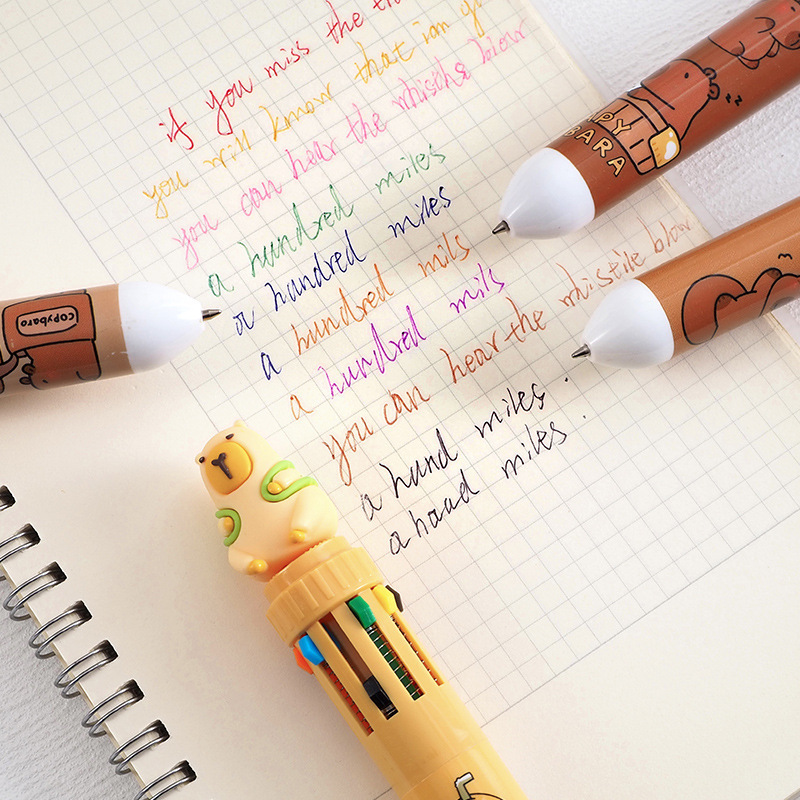 if you miss the
you will know that iam
you can hear the whisths blow
a hundred miles
a handred miles
a hundred mils
a hundred mils
you can hear the whistile blow
a hund miles.
a haad miles.
PY
BARA
zz
copybaro